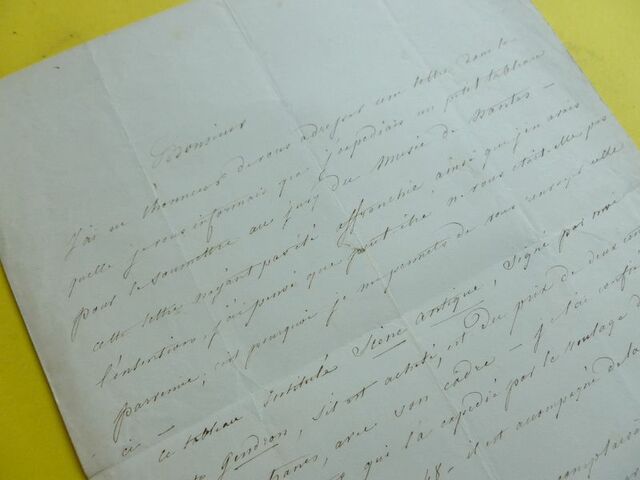 Monsieur
J'ai eu l'honneur de vous adresser une lettre dans la
quelle je vous informais que j'expédiais un petit tableau
pour le soumettre au jury du Musée de Nantes -
cette lettre n'ayant pas été affranchie, ainsi que j'en avais
l'intention, j'ai pensé que peut être ne vous était-elle pas
parvenue; c'est pourquoi je me permets de vous renvoyer celle
ci - ce tableau intitulé Scène antique, signé par moi
Gendron, s'il est acheté, est du prix de deux
francs, avec son cadre - je l'ai confié
qui l'a expédié par le roulage
48 - il est accompagné de la
complaisance